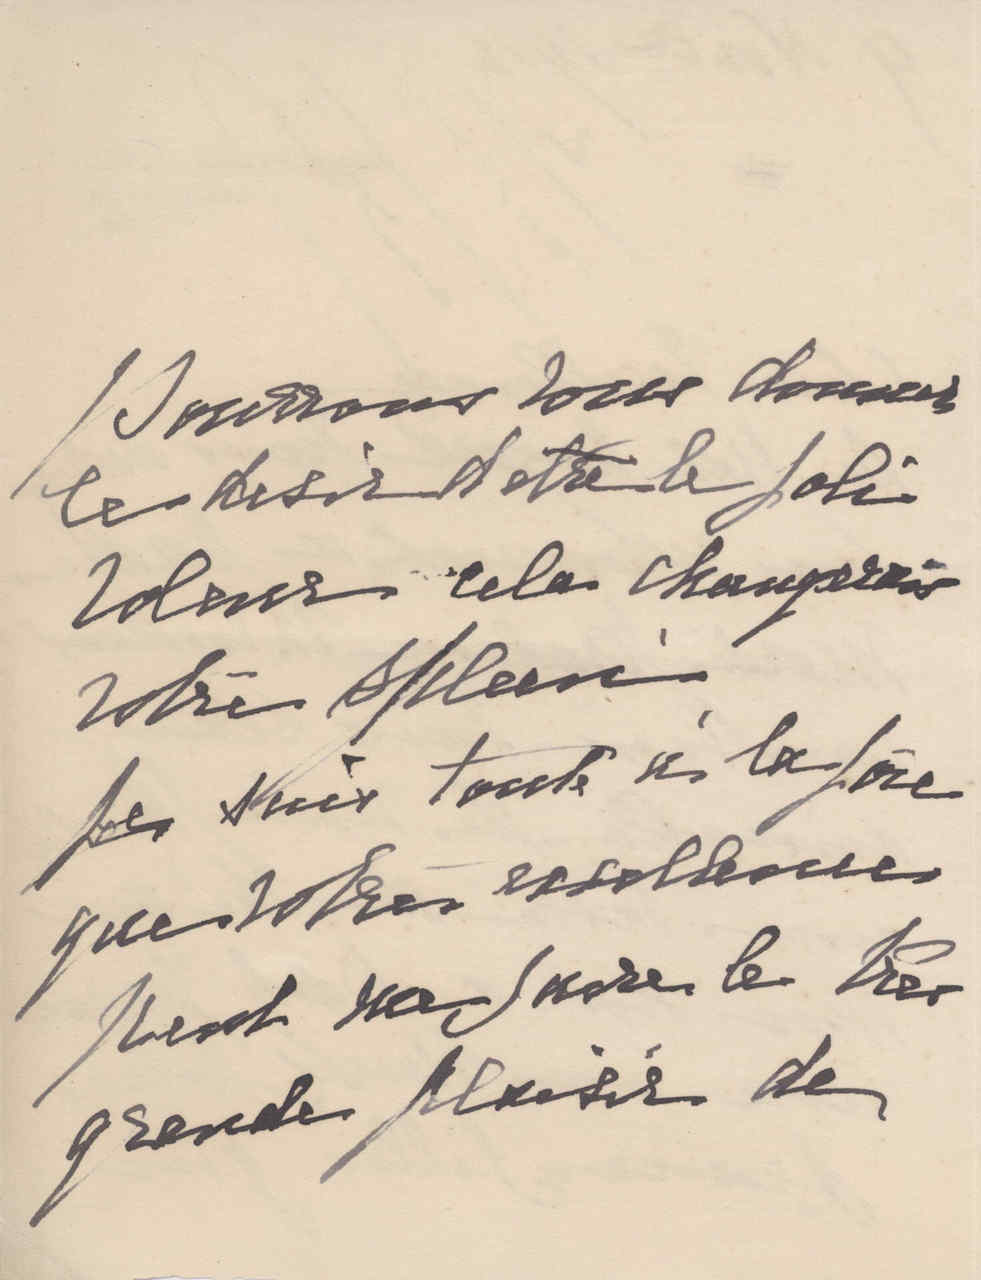 Pourrons vous donner
le desir d'etre le joli
voleur cela changerais
votre spleen
Je suis toute à la joie
que votre excellence
peut me faire le très
grande plaisir de